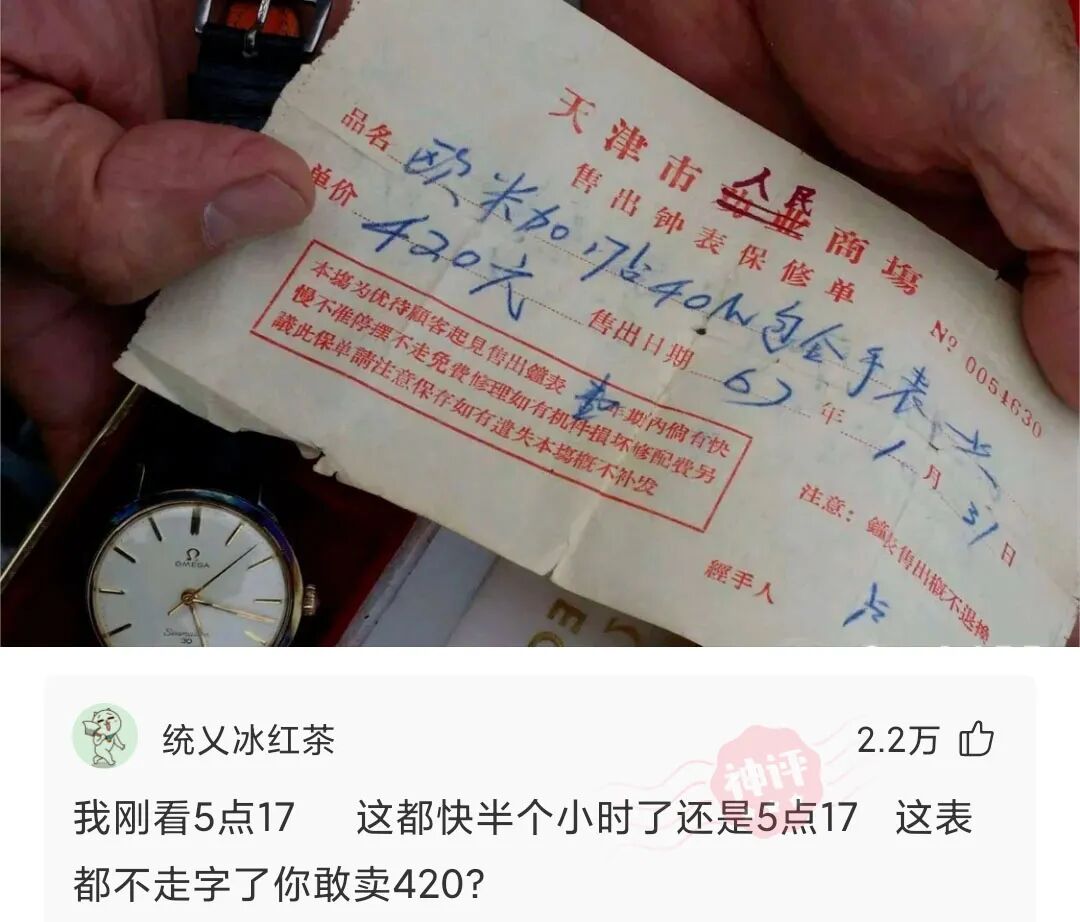 天津市人民商場
售出钟表保修单
№ 0054630
品名 欧米加17钻40m包金手表一只
单价 420元 售出日期 67年1月31日
本場为优待顧客起見售出鐘表 壹年期內倘有快
慢不准停擺不走免費修理如有机件損坏修配費另
議此保单請注意保存如有遺失本場概不补发
注意：鐘表售出概不退換
經手人
Ω
OMEGA
Seamaster
30
统乂冰红茶
2.2万
神评
我刚看5点17 这都快半个小时了还是5点17 这表
都不走字了你敢卖420?